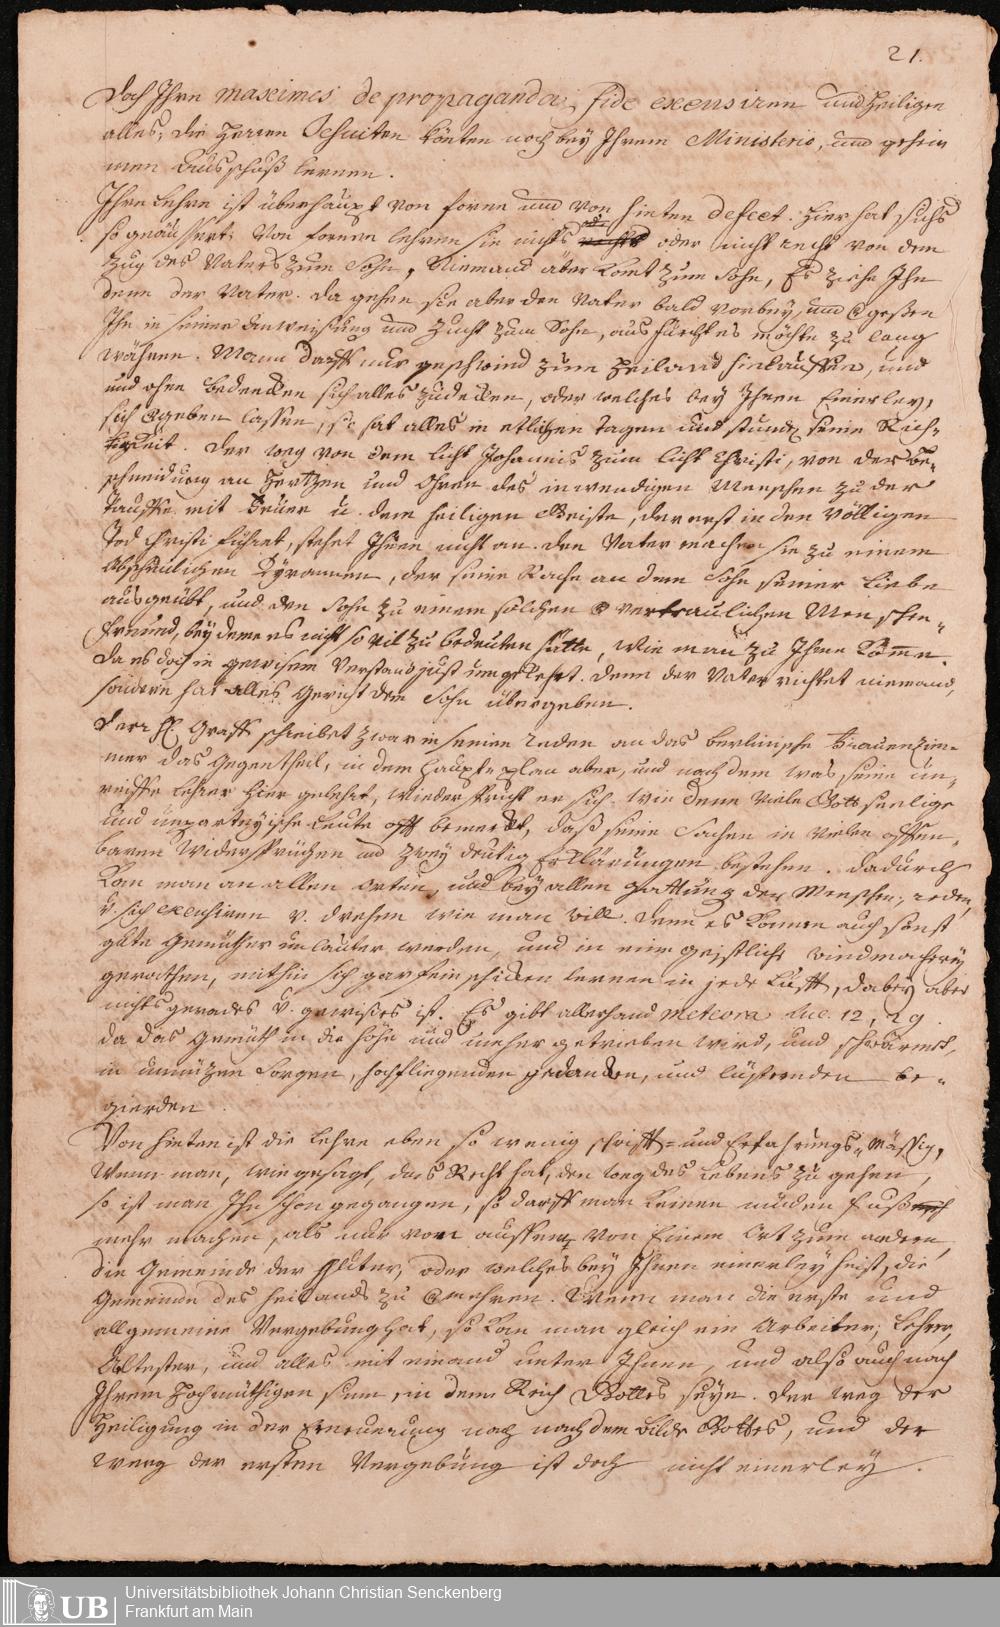 21.
Doch Ihre maximes de propaganda fide excusiren und heiligen
alles, die Herren Jesuiten könten noch bey Ihrem Ministerio, und geheim
men Ausschuß lernen.
Ihre Lehre ist überhaupt von forne und von hinten defect. Hier hat sichs
so geäussert: Von fornen lehren sie nichts oder nicht recht von dem
Zug des Vaters zum Sohn, Niemand aber komt zum Sohn, Es ziehe Ihn
denn der Vater. Da gehen sie aber den Vater bald vorbey, und
Ihn in seiner anweisung und Zucht zum Sohn, aus furcht es möchte zu lang
währen. Mann darff nur geschwind zum Heiland hinlauffen, und
und ohne bedencken sich alles zudecken, oder welches bey Ihnen Einerley,
sich vergeben lassen, so hat alles in etlichen tagen und stunden seine Rich-
tigkeit. Der weg von dem licht Johannis zum licht Christi, von der be-
schneidung an Hertzen und Ohren des inwendigen Menschen zu der
Tauffe mit Feuer u. dem heiligen Geiste, der erst in den völligen
Tod Christi führet, stehet Ihnen nicht an. den Vater machen sie zu einem
Abscheulichen Tyrannen, der seine Rache an dem Sohn seiner Liebe
ausgeübt, und den Sohn zu einem solchen vertraulichen Menschen-
freund, bey deme es nicht so viel zu bedeuten hätte, wie man zu Ihme komme.
da es doch in gewissem Verstand just umgekehrt. denn der Vater richtet niemand,
sondern hat alles Gericht dem Sohn übergeben.
Der H. Graff schreibet zwar in seinen reden an das berlinische Frauenzim-
mer das Gegentheil, in dem haupt-plan aber, und nach dem was seine un-
reiffe lehrer hier gelehrt, widerspricht er sich. wie denn viele Gottseelige
und unpartheyische Leute offt bemerckt, daß seine Sachen in vielen offen-
baren Widersprüchen und zweydeutig Erklärungen bestehen. dadurch
kan man an allen orten, und bey allen gattung der Menschen, reden,
u. sich excusiren u. drehen wie man will. denn es können auch sonst
gute Gemüther unlauter werden, und in eine geistliche windmacherey
gerathen, mithin sich gar fein schicken lernen in jede Lufft, dabey aber
nichts gerades u. gewißes ist. Es gibt allerhand meteora Luc. 12, 29.
da das Gemüth in die höhe und umher getrieben wird, und schwärmet,
in unnüzen Sorgen, hochfliegenden gedancken, und lüsternden be-
gierden.
Von hinten ist die Lehre eben so wenig schrifft- und Erfahrungs-mässig,
Wenn man, wie gesagt, das Recht hat, den weg des Lebens zu gehen,
so ist man Ihn schon gegangen, so darff man keinen müden Fuß
mehr machen, als nur von aussen von Einem Ort zum andern,
die Gemeinde der H. Güter, oder welches bey Ihnen einerley heist, die
Gemeinde des Heilands zu vermehren. Wenn man die erste und
allgemeine Vergebung hat, so kan man gleich ein Arbeiter, Lehrer,
Ältester, und alles mit einand unter Ihnen, und also auch nach
Ihrem Hochmüthigen sinn, in dem Reich Gottes seyn. Der weg der
Heiligung in der Erneuerung nach dem bilde Gottes, und der
weeg der ersten Vergebung ist doch nicht einerley.
UB Universitätsbibliothek Johann Christian Senckenberg
Frankfurt am Main